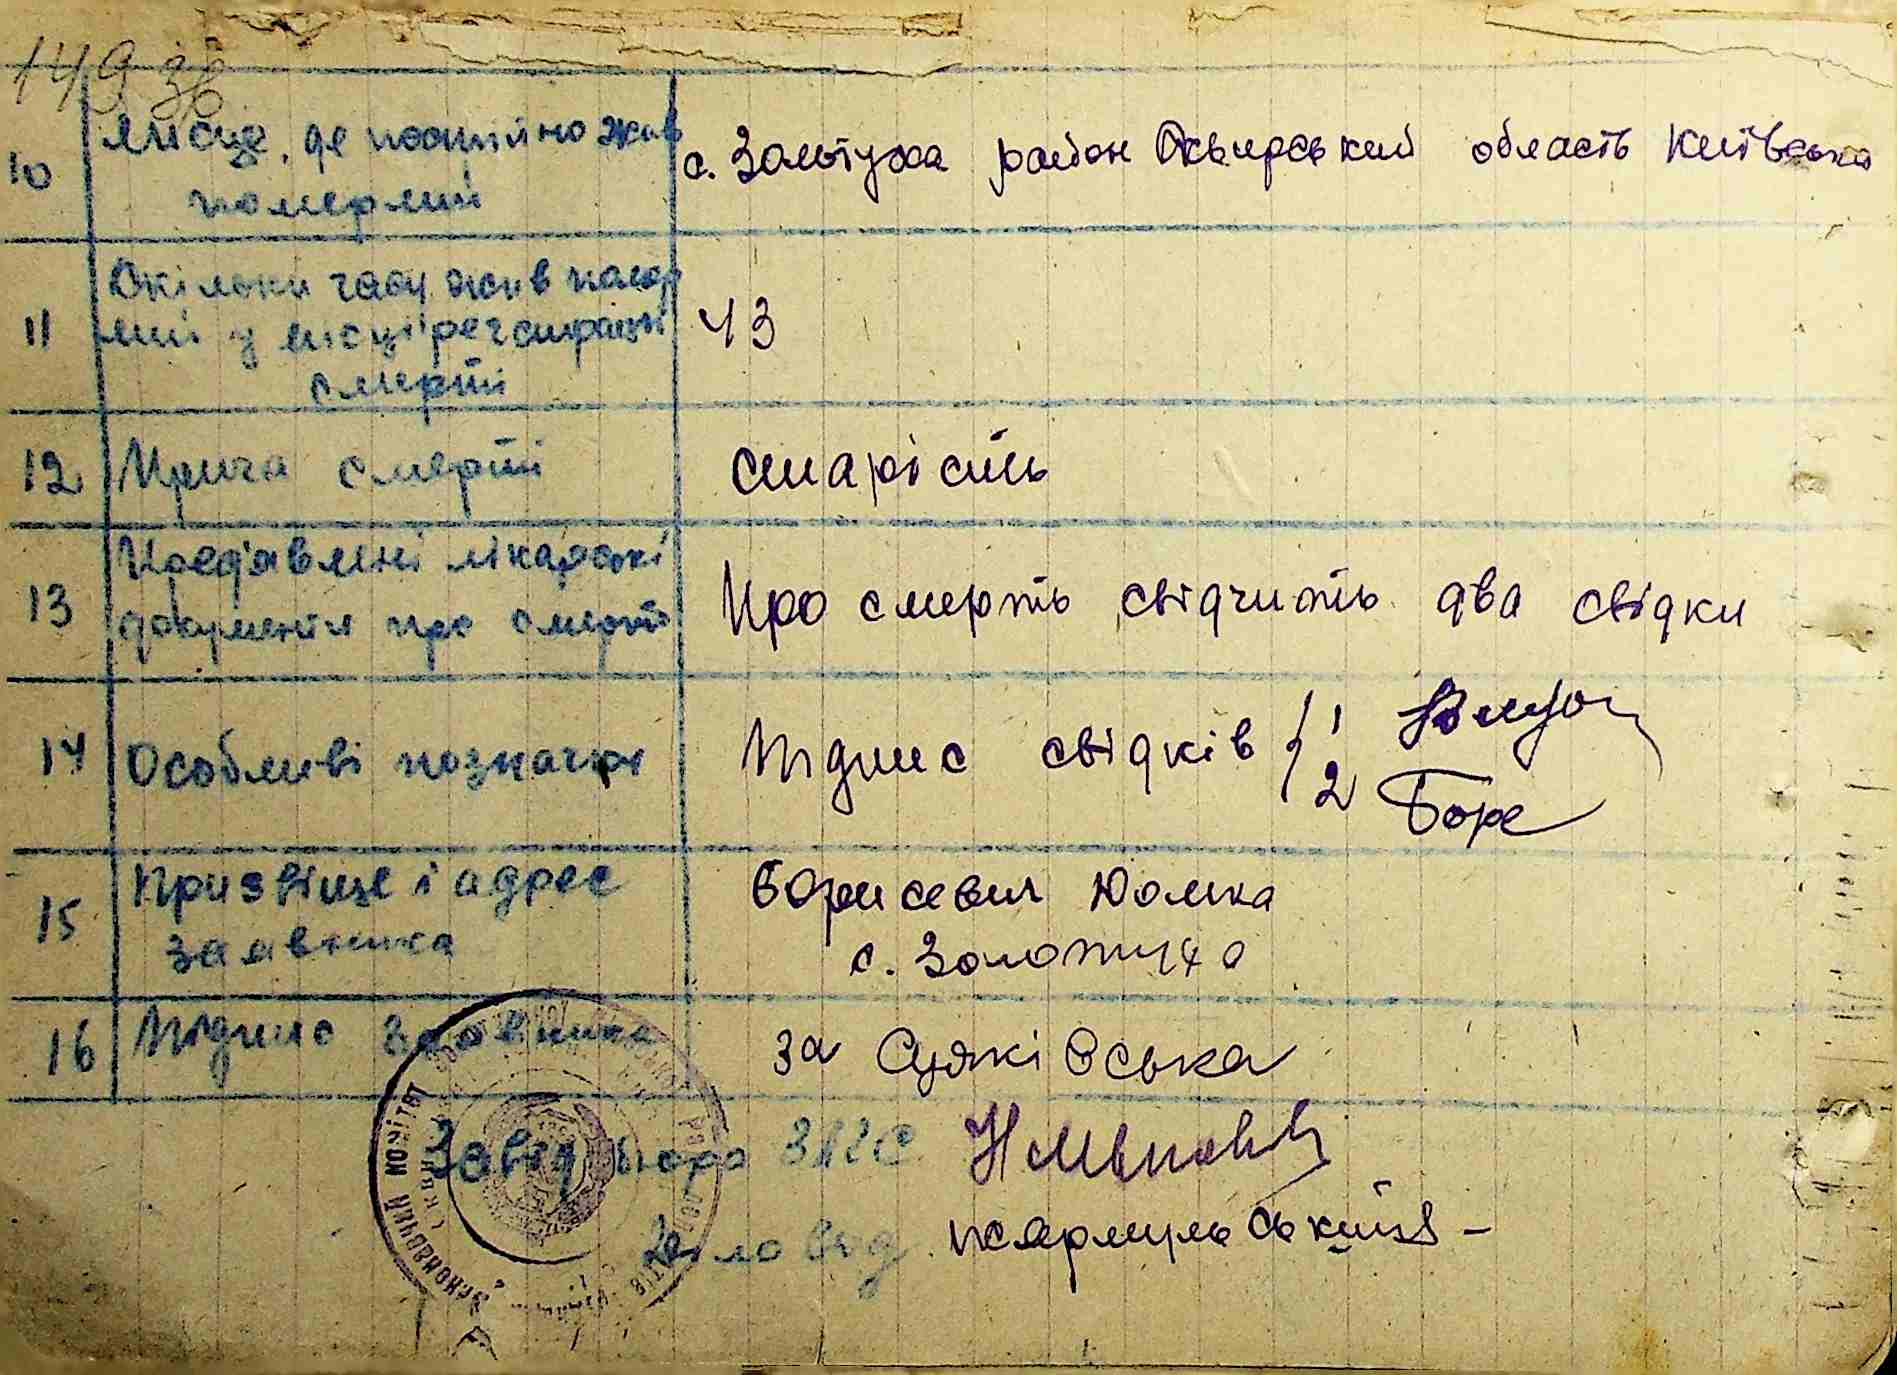 149 зв
10 Місце, де постійно жив
померлий
с. Золотуха район Сквирський область Київська
11 Скільки часу жив помер
лий у місці регистрації
смерті
43
12 Прича смерті
старість
13 Пред'явлені лікарські
документи про смерть
Про смерть свідчить два свідки
14 Особливі позначки
Підпис свідків { 1
2 Боре
15 Призвіще і адрес
заявника
Борисевич Юлика
с. Золотуха
16 Підпис заявника
за Суяківська
Завід бюро ЗАГС
Діловод
ВИКОНАВЧИЙ КОМІТЕТ